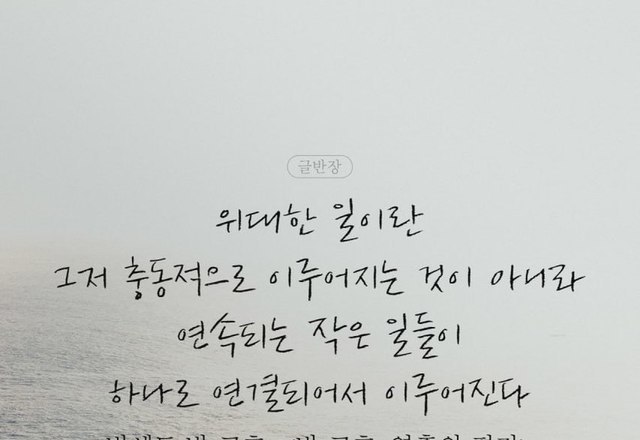 글반장
위대한 일이란
그저 충동적으로 이루어지는 것이 아니라
연속되는 작은 일들이
하나로 연결되어서 이루어진다